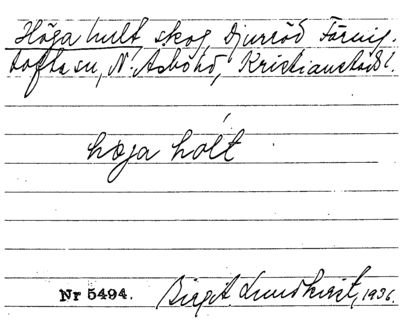 Höga hult, skog, Djurröd Färing-
tofta sn, N. Åsbo hd, Kristianstads l.
høja hólt
Nr 5494. Birgit Lundkvist, 1936.